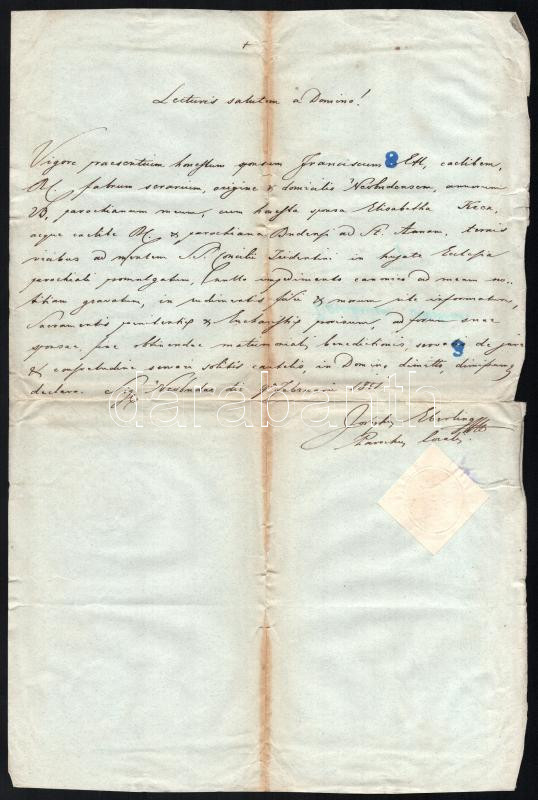 +
Lecturis salutem a Domino!
Vigore praesentium honestum sponsum Franciscum 8 caelibem,
fabrum serarium, origine & domicilio annorum
parochianum meum, cum honesta sponsa Elisabetha
aeque caelibe & parochiana Budensi ad St. Annam, ternis
vicibus ad mentem S.S. Concilii Tridentini in hujate Ecclesia
parochiali promulgatum, nullo impedimento canonico ad meam no-
titiam gravatum, in rudimentis fidei & morum rite informatum,
Sacramentis penitentiae & Eucharistiae provisum, ad forum suae
sponsae, pro obtinenda matrimoniali benedictione, servatis de jure
9
& consuetudine servari solitis cautelis, in Domino dimitto, dimissumq
declaro. Februarii
Eberling
Parochus localis.
darabanth